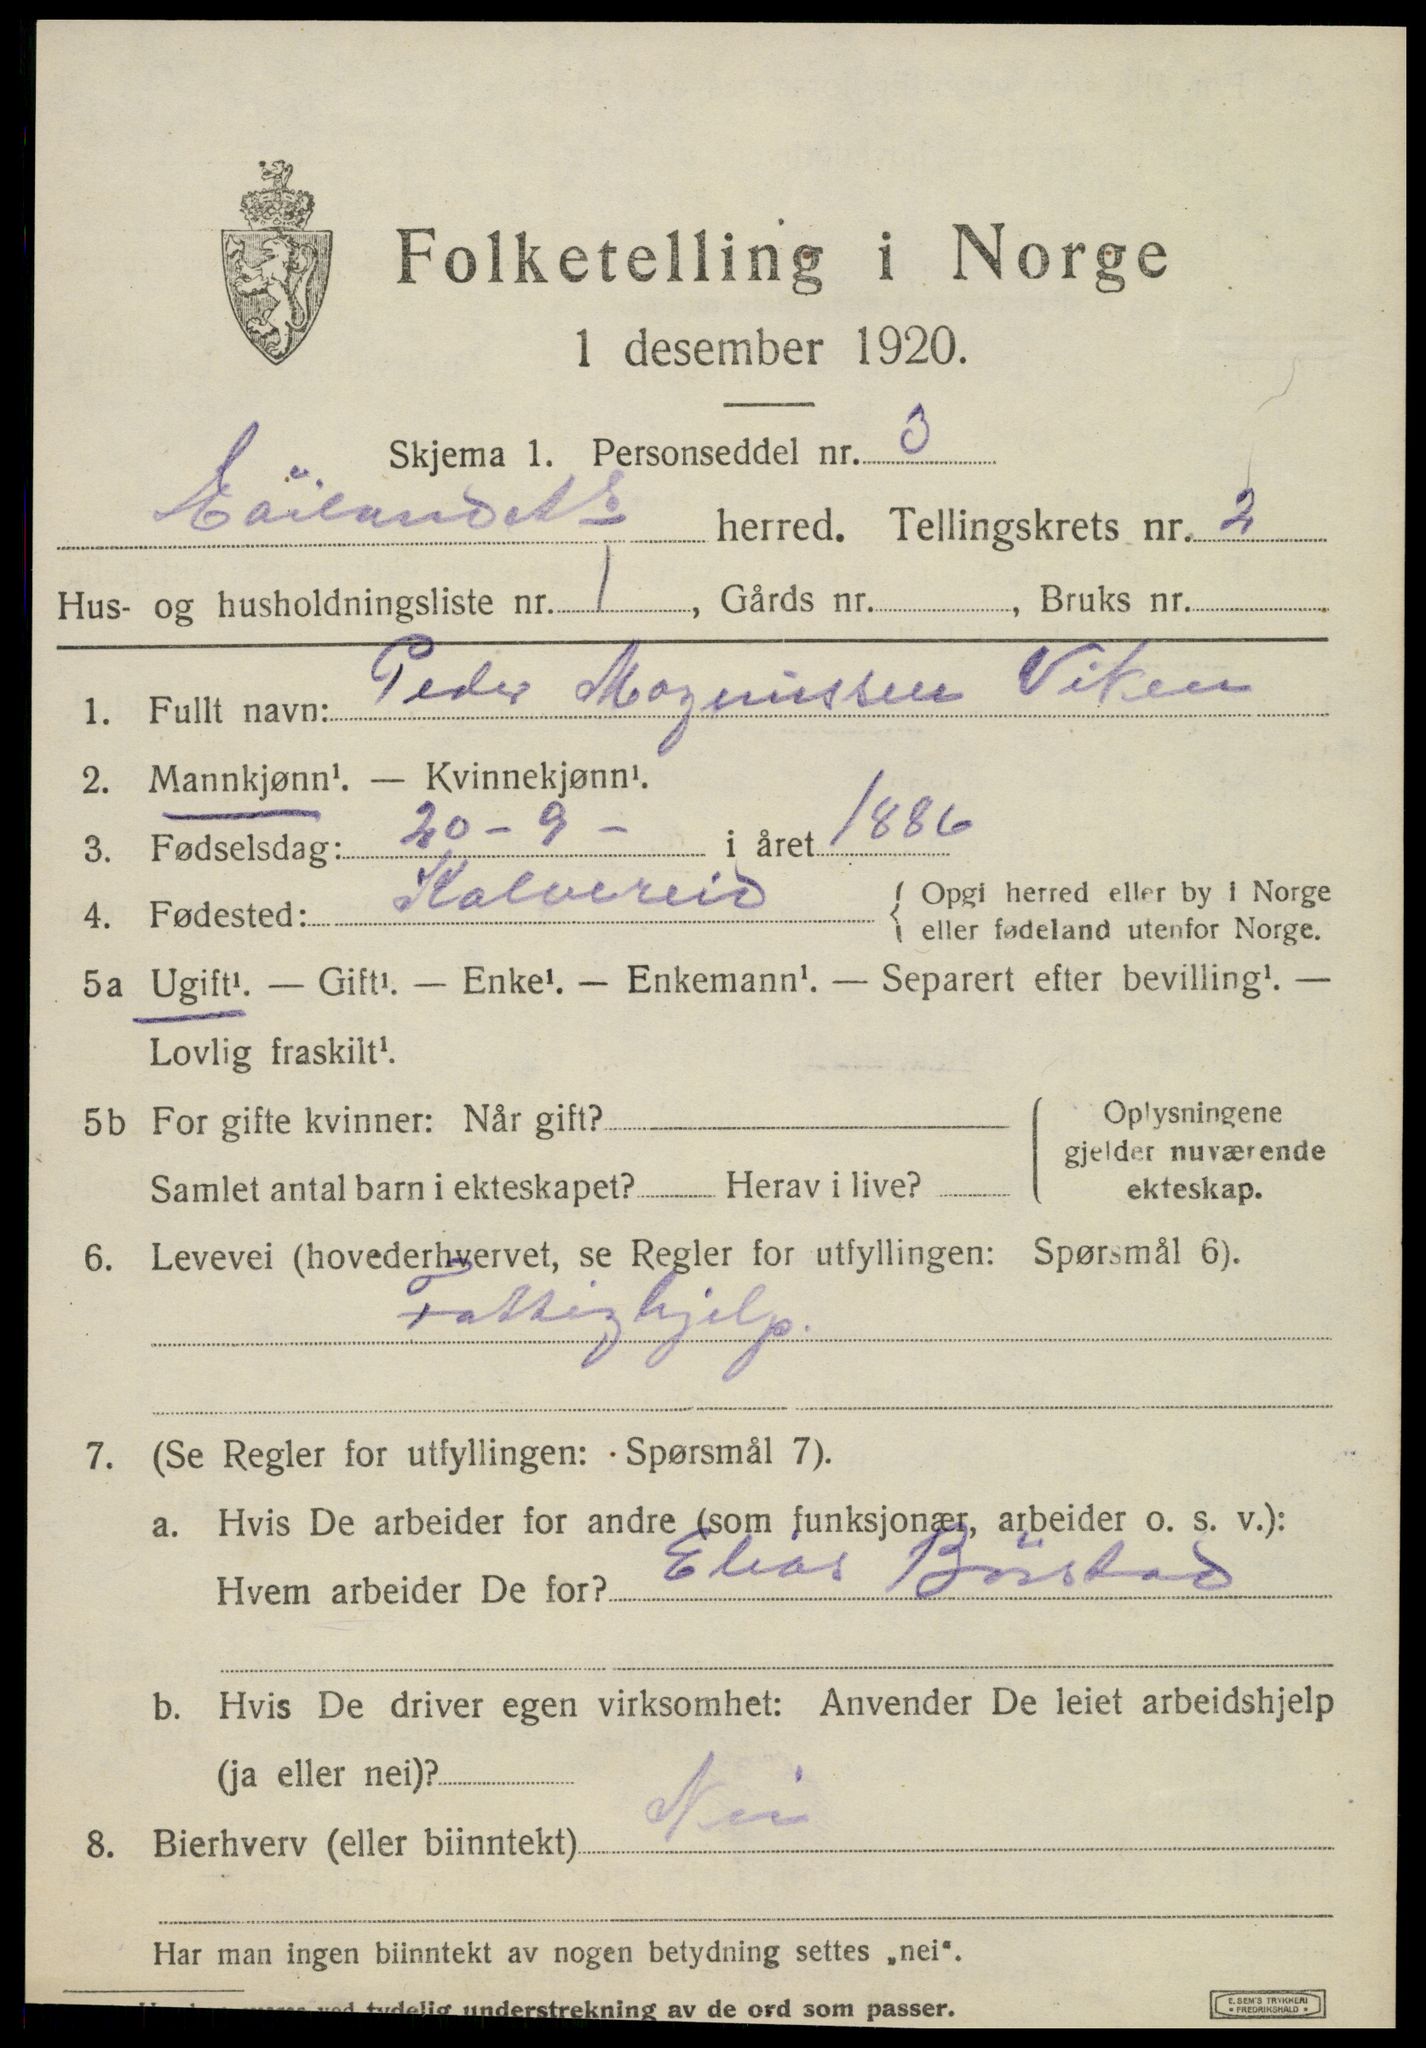 Folketelling i Norge
1 desember 1920.
Skjema 1. Personseddel nr. 3
herred. Tellingskrets nr. 2
Hus- og husholdningsliste nr. 1, Gårds nr. , Bruks nr.
1. Fullt navn: Peder Magnussen Viken
2. Mannkjønn¹. — Kvinnekjønn¹.
3. Fødselsdag: 20 - 9 - i året 1886
4. Fødested: Kalvereid { Opgi herred eller by i Norge
eller fødeland utenfor Norge.
5a Ugift¹. — Gift¹. — Enke¹. — Enkemann¹. — Separert efter bevilling¹. —
Lovlig fraskilt¹.
5b For gifte kvinner: Når gift? { Oplysningene
gjelder nuværende
Samlet antal barn i ekteskapet? Herav i live? ekteskap.
6. Levevei (hovederhvervet, se Regler for utfyllingen: Spørsmål 6).
Fattighjelp.
7. (Se Regler for utfyllingen: Spørsmål 7).
a. Hvis De arbeider for andre (som funksjonær, arbeider o. s. v.):
Hvem arbeider De for? Elias Börstad
b. Hvis De driver egen virksomhet: Anvender De leiet arbeidshjelp
(ja eller nei)?
8. Bierhverv (eller biinntekt) Nei
Har man ingen biinntekt av nogen betydning settes „nei“.
ved tydelig understrekning av de ord som passer.
E. SEM'S TRYKKERI
FREDRIKSHALD